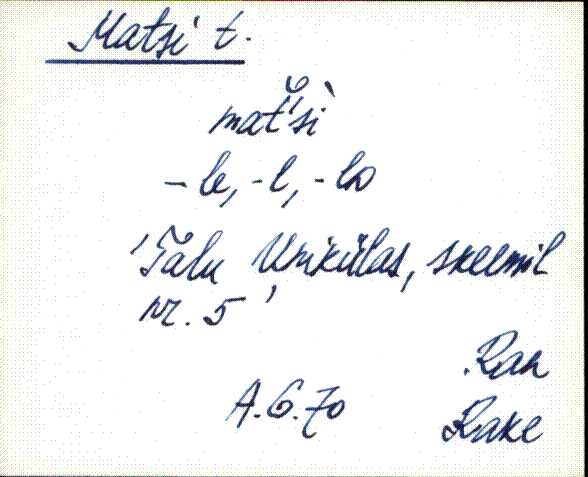 Matsi t.
mat́'sì
-le, -l, -lo
'Talu Unikülas, skeemil
nr. 5'
Ran
A.G.70
Rake